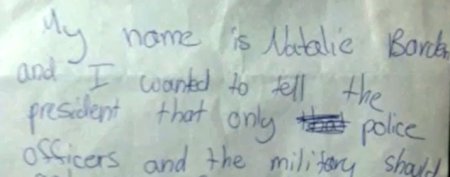 My name is Natalie Barden
and I wanted to tell the
president that only police
officers and the military should